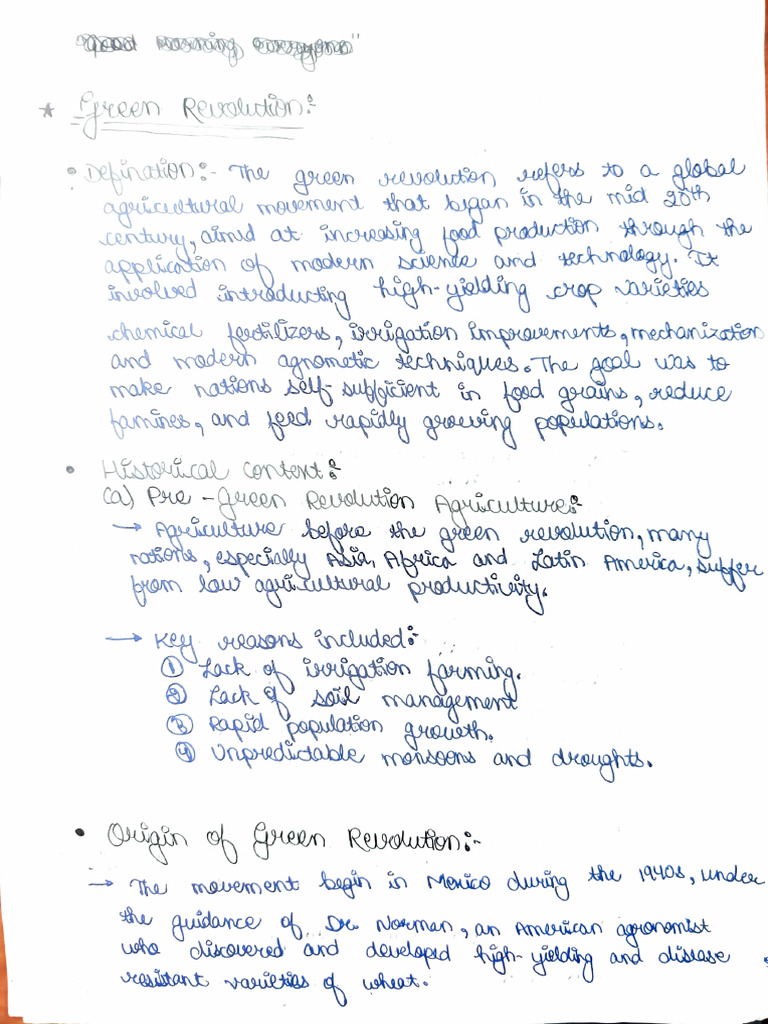 "good morning everyone"
* Green Revolution:-
• Defination:- The green revolution refers to a global
agricultural movement that began in the mid 20th
century, aimd at increasing food production through the
application of modern science and technology. It
involved introducting high-yielding crop varieties
chemical fertilizers, irrigation improvements, mechanization
and modern agnometic techniques. The goal was to
make nations self-sufficient in food grains, reduce
famines, and feed rapidly growing populations.
• Historical content:-
(a) Pre-Green Revolution Agriculture:-
→ Agriculture before the green revolution, many
nations, especially Asia, Africa and Latin America, suffer
from low agricultural productivity.
→ Key reasons included:-
① Lack of irrigation farming.
② Lack of soil management
③ Rapid population growth.
④ Unpredictable monsoons and droughts.
• Origin of Green Revolution:-
→ The movement begin in Mexico during the 1940s, under
the guidance of Dr. Norman, an American agronomist
who discovered and developed high-yielding and disease
resistant varieties of wheat.